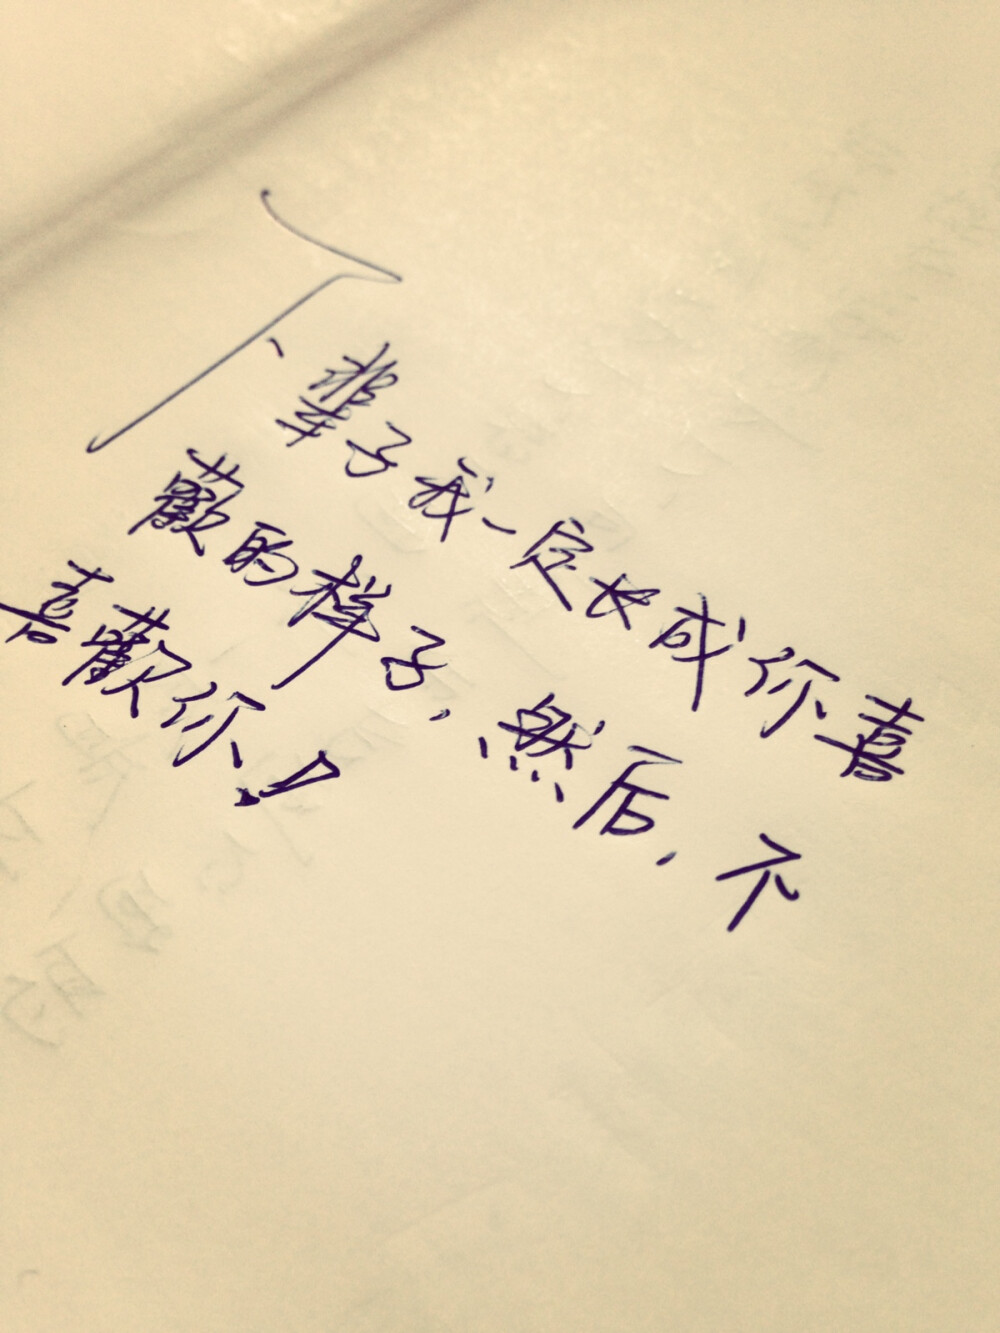 下辈子我一定长成你喜
歡的样子，然后，不
喜歡你！